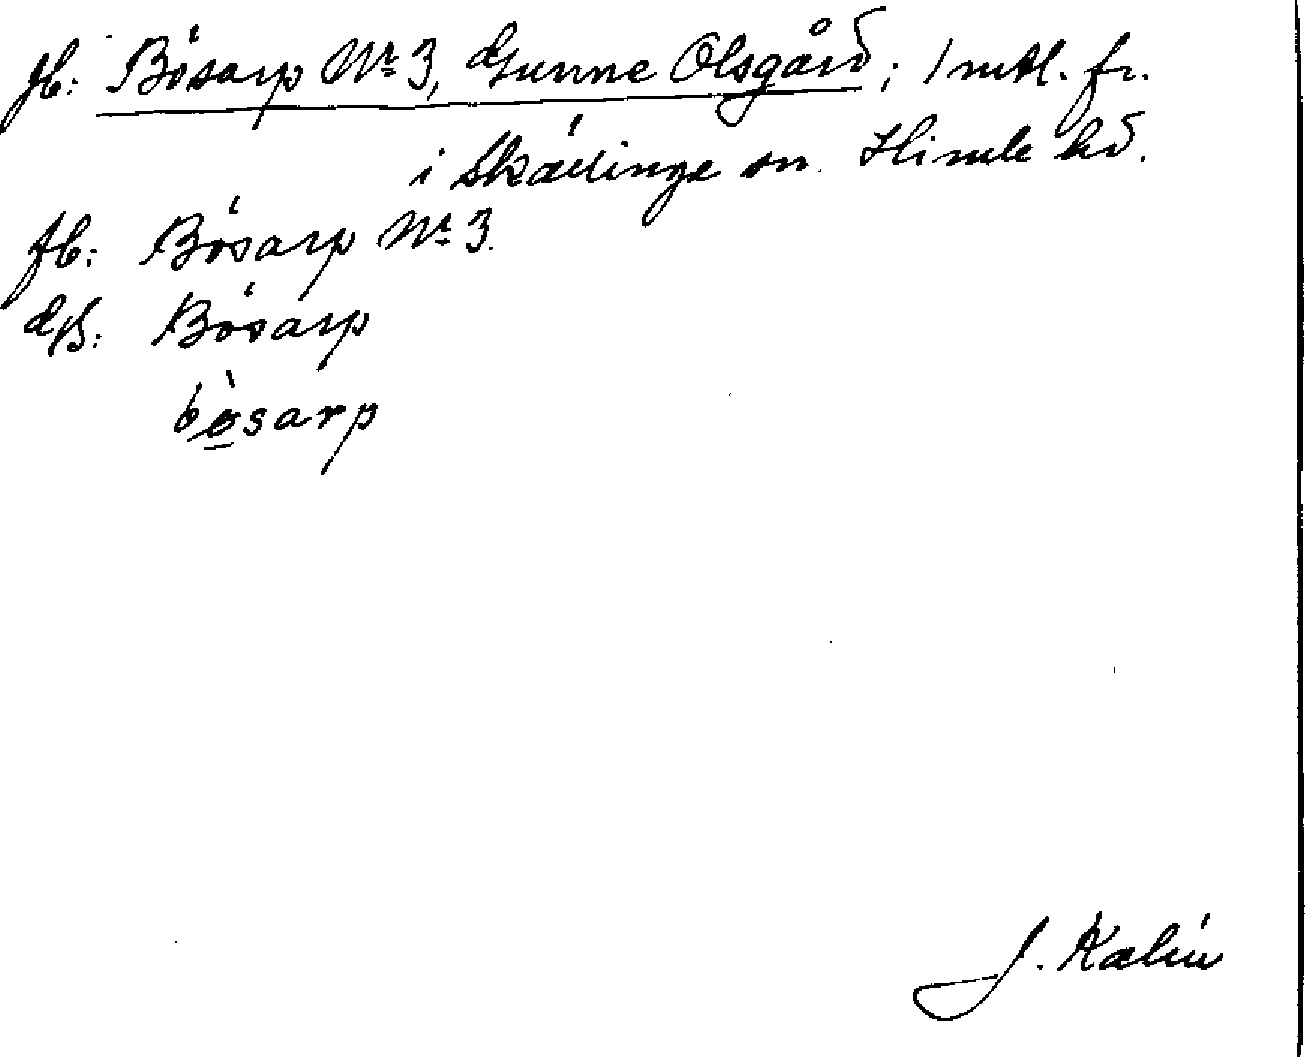 Jb: Bösarp Nr 3, Gunne Olsgård; 1 mtl. fr.
i Skällinge sn. Himle hd.
fb: Bösarp Nr 3.
ds: Bösarp
bösarp
J. Kalén